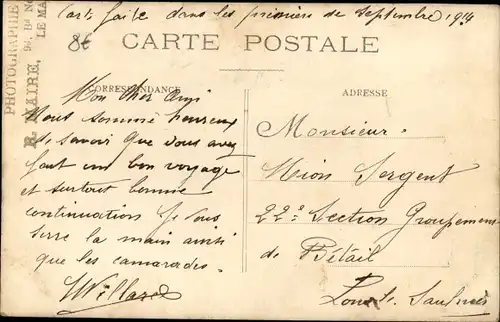 Carte faite dans les premiers de Septembre 1914
8€
CARTE POSTALE
PHOTOGRAPHIE
R. MAIRE, 90, Bd No
LE MA
CORRESPONDANCE
ADRESSE
Mon cher Ami
Nous somme heureux
de savoir que vous avez
fait un bon voyage
et surtout bonne
continuation Je vous
serre la main ainsi
que les camarades.
Willard
Monsieur.
Mion Sergent
22e Section Groupement
de Bétail
Lons-l-Saulnier